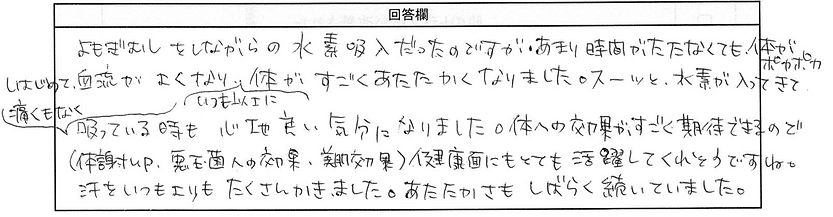 回答欄
よもぎむしをしながらの水素吸入だったのですが、あまり時間がたたなくても、体がポカポカ
しはじめて、血流がよくなり、いつも以上に体がすごくあたたかくなりました。スーッと、水素が入ってきて、
痛くもなく吸っている時も心地良い気分になりました。体への効果がすごく期待できるので
(体謝up、悪玉菌への効果、美肌効果)健康面にもとても活躍してくれそうですね。
汗をいつもよりもたくさんかきました。あたたかさもしばらく続いていました。